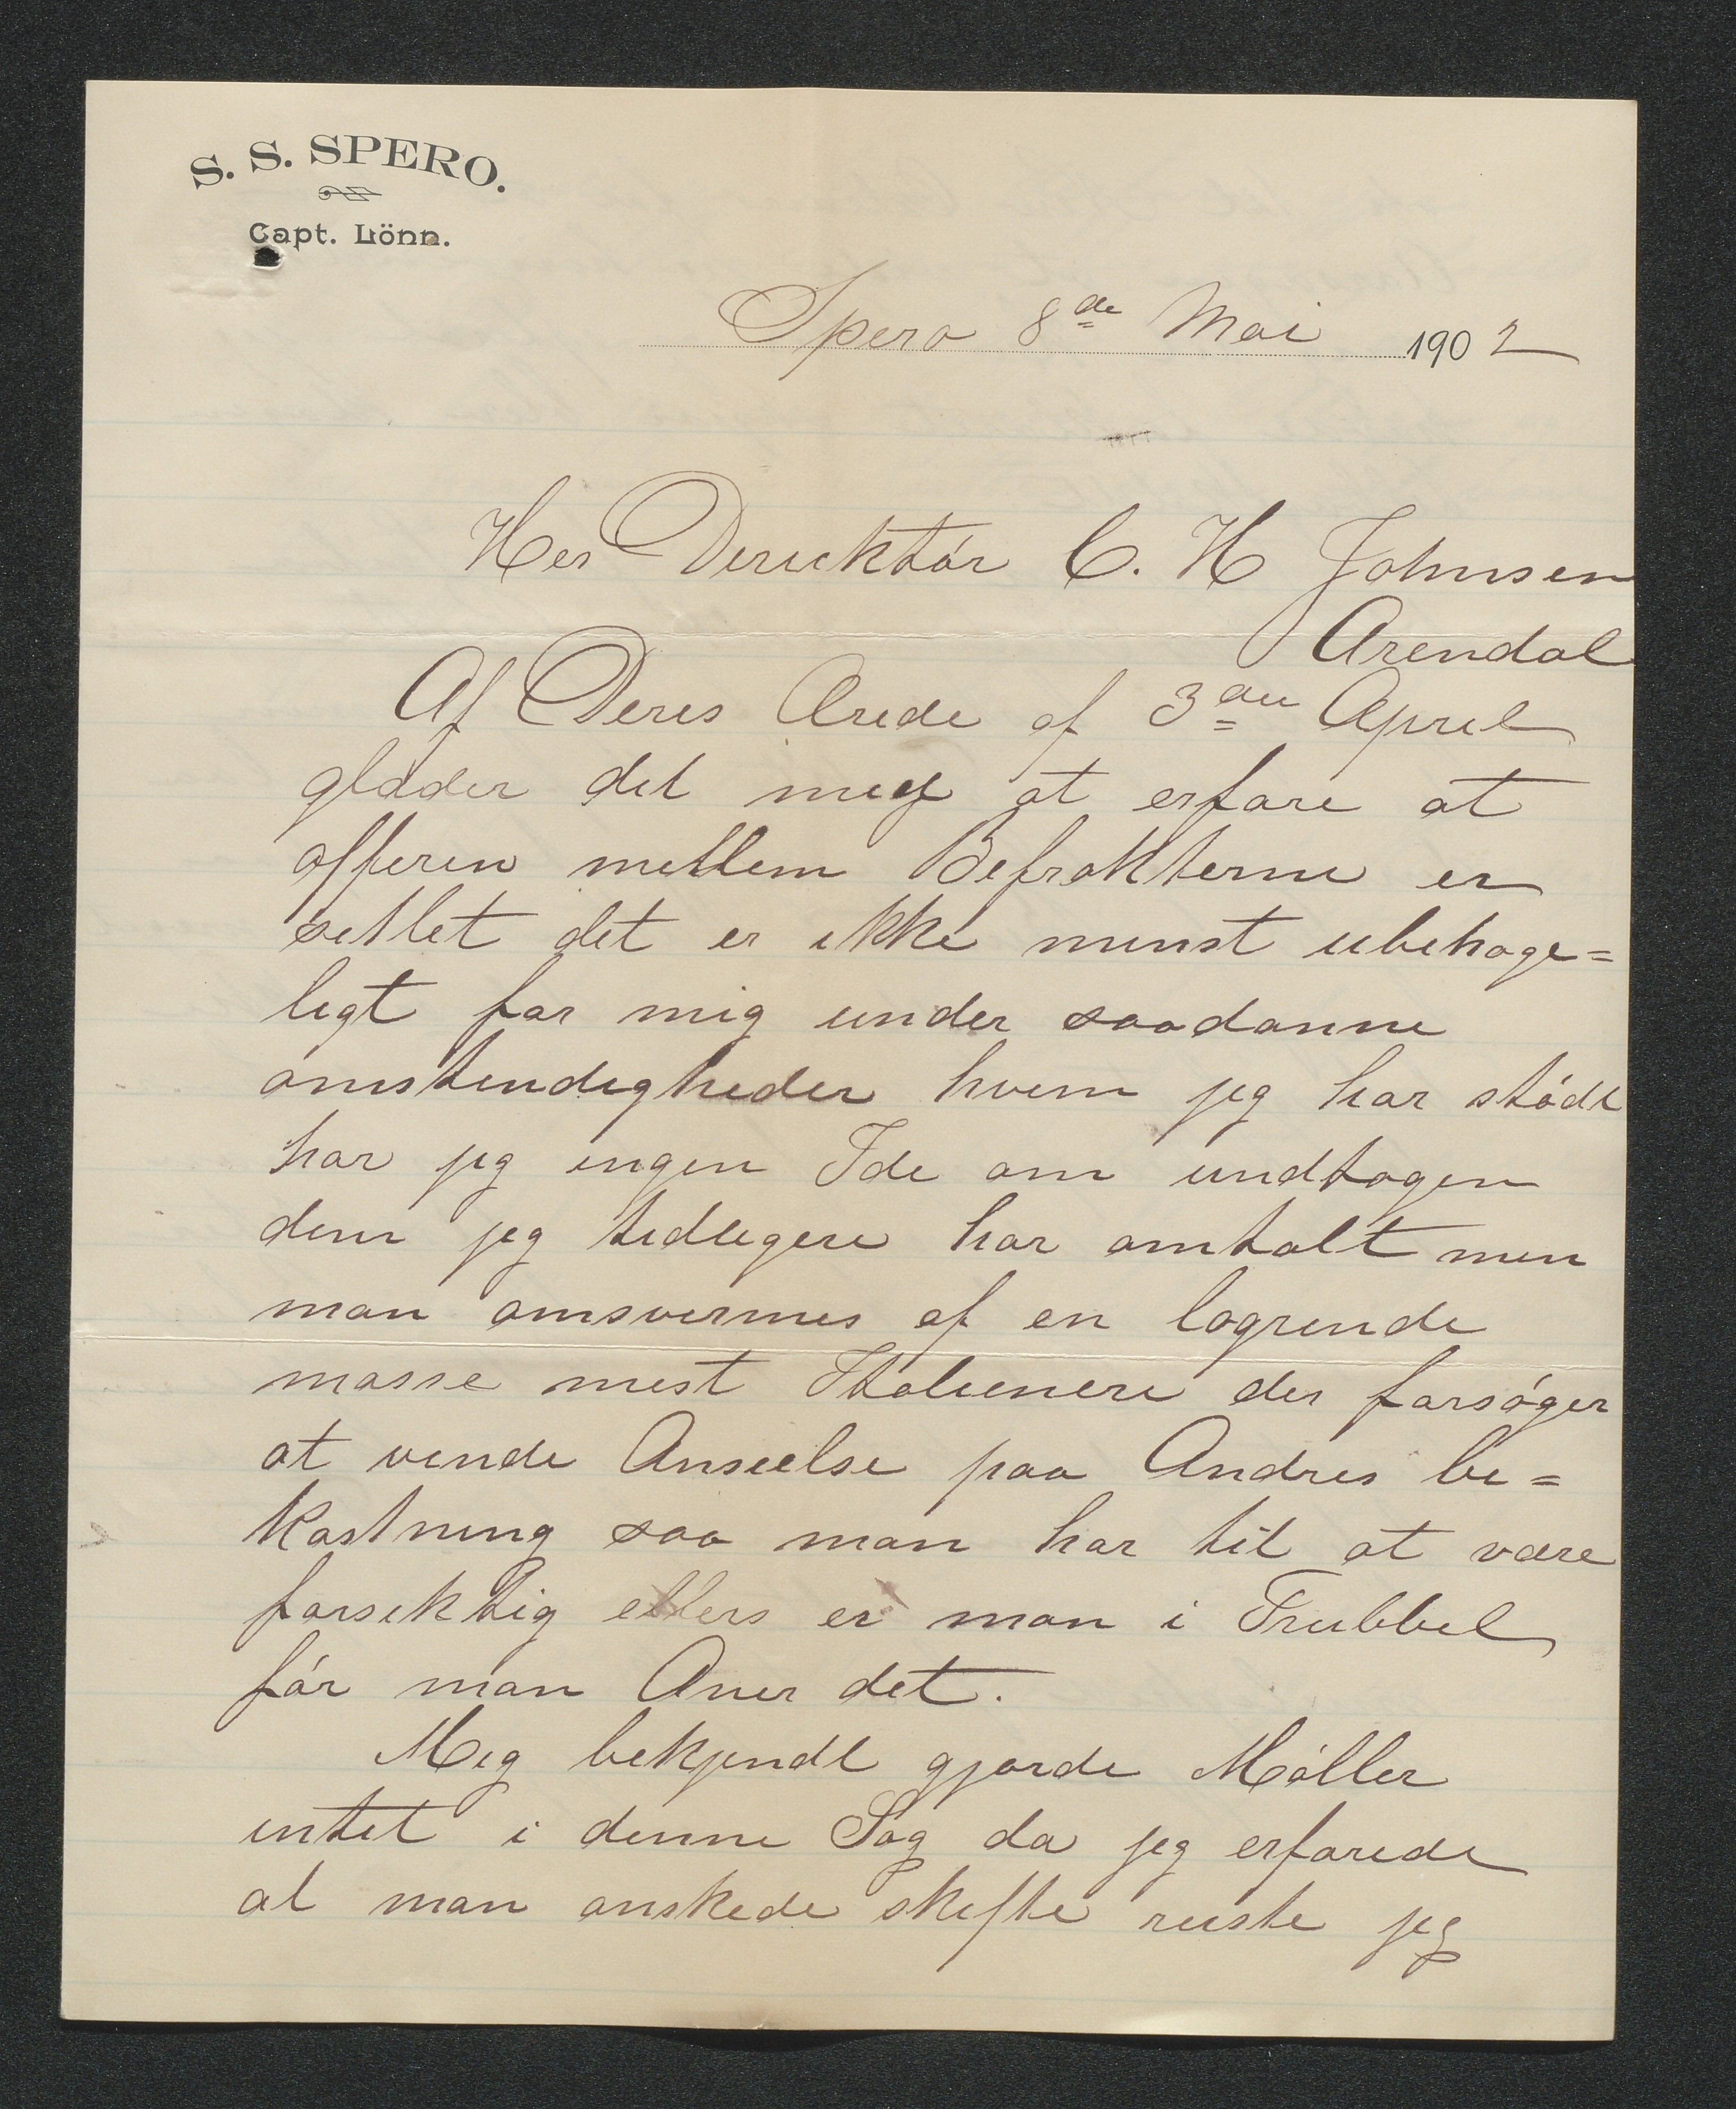 S. S. SPERO.
Capt. Lönn.
Spero 8de Mai 1902
Her Direcktör C. H Johnsen
Arendal
Af Deres Ærede af 3die April
glæder det mig at erfare at
afferen mellem Befrakterne er
settlet det er ikke minst ubehage=
ligt for mig under saadanne
omstendigheder hvem jeg har stödt
har jeg ingen Ide om undtagen
dem jeg tidligere har omtalt men
man omsvermes af en logrende
masse mest Italienere der forsöger
at vinde Anseelse paa Andres be=
kostning saa man har til at være
forsiktig ellers er man i Trubbel
för man Aner det.
Mig bekjendt gjorde Möller
intet i denne Sag da jeg erfarede
at man önskede skifte reiste jeg